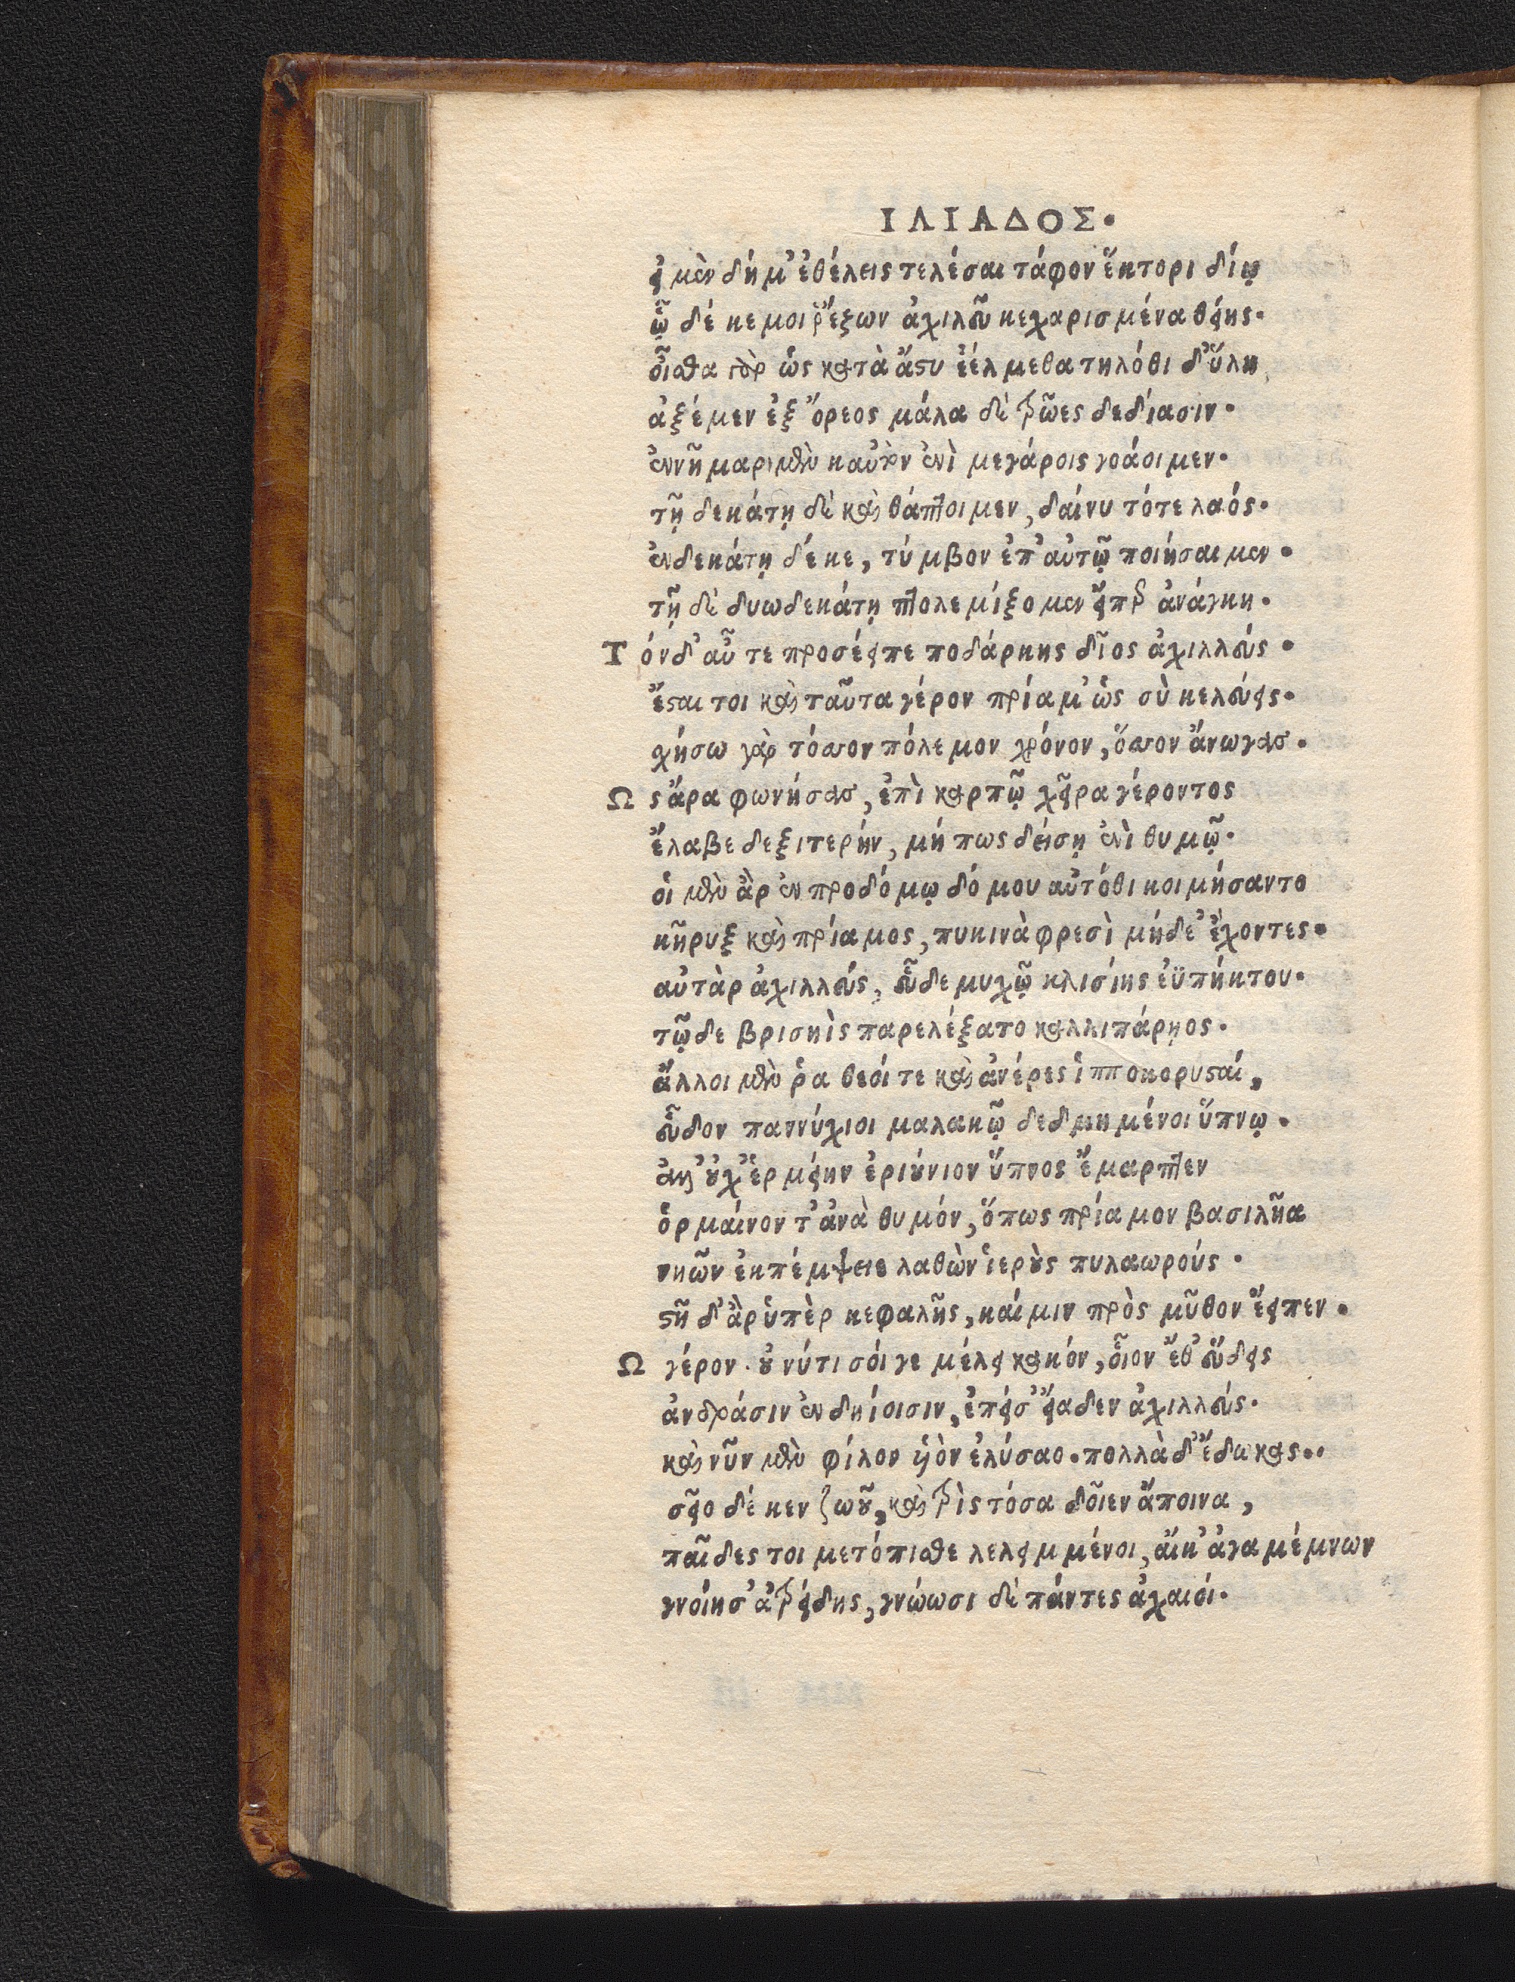 ΙΛΙΑΔΟΣ.
εἰ μὲν δή μ' ἐθέλεις τελέσαι τάφον ἕκτορι δίῳ
ᾧ δέ κε μοι ῥέξων ἀχιλεῦ κεχαρισμένα θείης.
οἶσθα γὰρ ὡς κατὰ ἄστυ ἐέλμεθα τηλόθι δ' ὕλη
ἀξέμεν ἐξ ὄρεος μάλα δὲ τρῶες δεδίασιν.
ἐννῆμαρ μὲν κ' αὐτὸν ἐνὶ μεγάροις γοάοιμεν.
τῇ δεκάτῃ δὲ καὶ θάπτοιμεν, δαίνυτό τε λαός.
ἑνδεκάτῃ δέ κε, τύμβον ἐπ' αὐτῷ ποιήσαιμεν.
τῇ δὲ δυωδεκάτῃ πτολεμίξομεν εἴπερ ἀνάγκη.
Τόνδ' αὖτε προσέειπε ποδάρκης δῖος ἀχιλλεύς.
ἔσται τοι καὶ ταῦτα γέρον πρίαμ' ὡς σὺ κελεύεις.
χήσω γὰρ τόσσον πόλεμον χρόνον, ὅσσον ἄνωγας.
Ως ἄρα φωνήσας, ἐπὶ καρπῷ χεῖρα γέροντος
ἔλαβε δεξιτερήν, μή πως δείσῃ ἐνὶ θυμῷ.
οἱ μὲν ἂρ ἐν προδόμῳ δόμου αὐτόθι κοιμήσαντο
κῆρυξ καὶ πρίαμος, πυκινὰ φρεσὶ μήδε' ἔχοντες.
αὐτὰρ ἀχιλλεύς, εὗδε μυχῷ κλισίης ἐϋπήκτου.
τῷ δε βρισηὶς παρελέξατο καλλιπάρῃος.
ἄλλοι μὲν ῥα θεοί τε καὶ ἀνέρες ἱπποκορυσταί,
εὗδον παννύχιοι μαλακῷ δεδμημένοι ὕπνῳ.
ἀλλ' οὐχ' ἑρμείην ἐριούνιον ὕπνος ἔμαρπτεν
ὁρμαίνοντ' ἀνὰ θυμόν, ὅπως πρίαμον βασιλῆα
νηῶν ἐκπέμψειε λαθὼν ἱεροὺς πυλαωρούς.
στῆ δ' ἂρ ὑπὲρ κεφαλῆς, καί μιν πρὸς μῦθον ἔειπεν.
Ω γέρον. οὔ νύ τι σοίγε μέλει κακόν, οἷον ἔθ' εὕδεις
ἀνδράσιν ἐν δηίοισιν, ἐπεί σ' εἴαδεν ἀχιλλεύς.
καὶ νῦν μὲν φίλον υἱὸν ἐλύσαο. πολλὰ δ' ἔδωκας.
σεῖο δέ κεν ζωοῦ, καὶ τρὶς τόσα δοῖεν ἄποινα,
παῖδες τοι μετόπισθε λελειμμένοι, αἴκ' ἀγαμέμνων
γνοίησ' ἀτρείδης, γνώωσι δὲ πάντες ἀχαιοί.